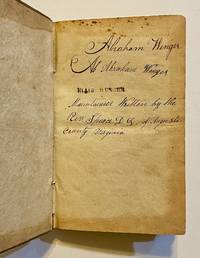 Abraham Winger
Abraham Winger
Mountaineer Written by the
Rev of Augusta
County Virginia